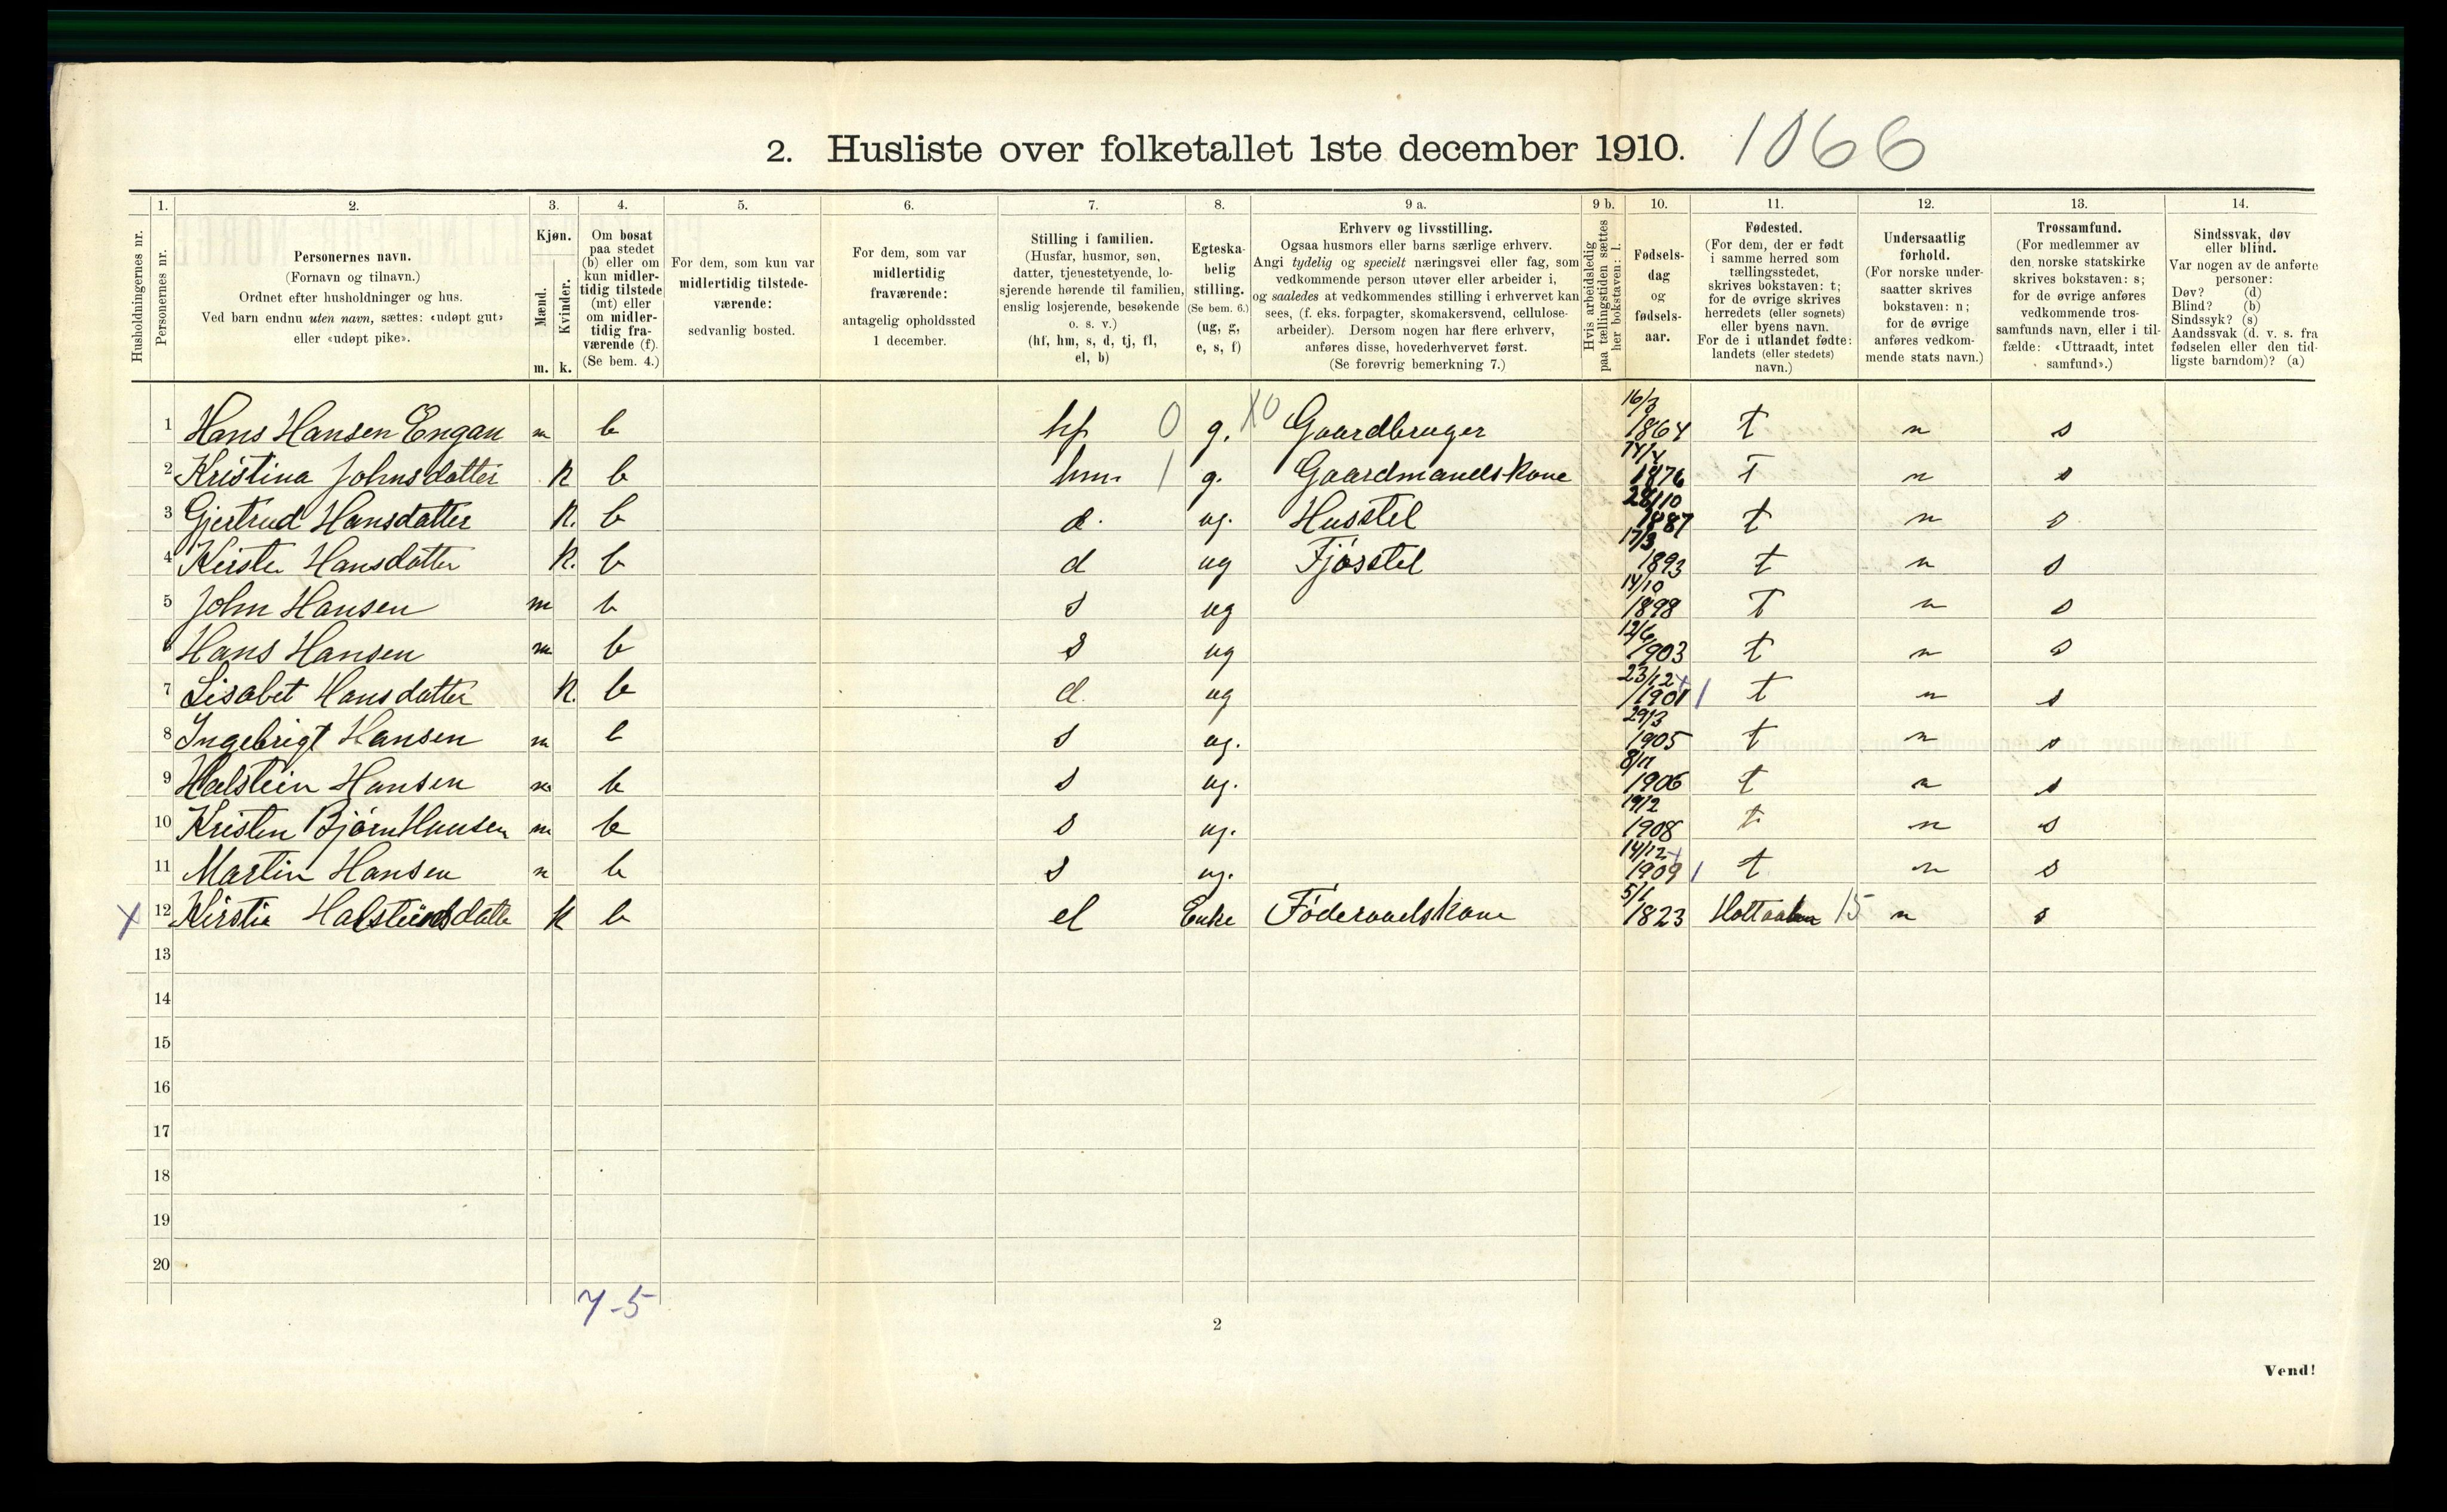 2. Husliste over folketallet 1ste december 1910. 1066
1. 2. 3. 4. 5. 6. 7. 8. 9 a. 9 b. 10. 11. 12. 13. 14.
Husholdningernes nr.
Personernes nr.
Personernes navn.
(Fornavn og tilnavn.)
Ordnet efter husholdninger og hus.
Ved barn endnu uten navn, sættes: «udøpt gut»
eller «udøpt pike».
Kjøn.
Mænd.
Kvinder.
m. k.
Om bosat
paa stedet
(b) eller om
kun midler-
tidig tilstede
(mt) eller
om midler-
tidig fra-
værende (f).
(Se bem. 4.)
For dem, som kun var
midlertidig tilstede-
værende:
sedvanlig bosted.
For dem, som var
midlertidig
fraværende:
antagelig opholdssted
1 december.
Stilling i familien.
(Husfar, husmor, søn,
datter, tjenestetyende, lo-
sjerende hørende til familien,
enslig losjerende, besøkende
o. s. v.)
(hf, hm, s, d, tj, fl,
el, b)
Egteska-
belig
stilling.
(Se bem. 6.)
(ug, g,
e, s, f)
Erhverv og livsstilling.
Ogsaa husmors eller barns særlige erhverv.
Angi tydelig og specielt næringsvei eller fag, som
vedkommende person utøver eller arbeider i,
og saaledes at vedkommendes stilling i erhvervet kan
sees, (f. eks. forpagter, skomakersvend, cellulose-
arbeider). Dersom nogen har flere erhverv,
anføres disse, hovederhvervet først.
(Se forøvrig bemerkning 7.)
Hvis arbeidsledig
paa tællingstiden sættes
her bokstaven: l.
Fødsels-
dag
og
fødsels-
aar.
Fødested.
(For dem, der er født
i samme herred som
tællingsstedet,
skrives bokstaven: t;
for de øvrige skrives
herredets (eller sognets)
eller byens navn.
For de i utlandet fødte:
landets (eller stedets)
navn.)
Undersaatlig
forhold.
(For norske under-
saatter skrives
bokstaven: n;
for de øvrige
anføres vedkom-
mende stats navn.)
Trossamfund.
(For medlemmer av
den norske statskirke
skrives bokstaven: s;
for de øvrige anføres
vedkommende tros-
samfunds navn, eller i til-
fælde: «Uttraadt, intet
samfund».)
Sindssvak, døv
eller blind.
Var nogen av de anførte
personer:
Døv? (d)
Blind? (b)
Sindssyk? (s)
Aandssvak (d. v. s. fra
fødselen eller den tid-
ligste barndom)? (a)
1 Hans Hansen Engan m b hf 0 g. X0 Gaardbruger 16/3 1864 t n s
2 Kristina Johnsdatter k b hm 1 g. Gaardmandskone 14/4 1876 t n s
3 Gjertrud Hansdatter k. b d. ug. Husstel 28/10 1887 t n s
4 Kirste Hansdatter k. b d ug Fjøsstel 17/3 1893 t n s
5 John Hansen m b s ug 14/10 1898 t n s
6 Hans Hansen m b s ug 12/6 1903 t n s
7 Lisabet Hansdatter k. b d ug 23/12 1901 t n s
8 Ingebrigt Hansen m b s ug. 29/3 1905 t n s
9 Halstein Hansen m b s ug. 8/11 1906 t n s
10 Kristen Bjørn Hansen m b s ug. 19/2 1908 t n s
11 Martin Hansen m b s ug. 14/12 1909 t n s
X 12 Kirstie Halsteinsdatte k b el Enke Føderaadskone 5/1 1823 Holtaalen 15 n s
13
14
15
16
17
18
19
20
7-5
2
Vend!